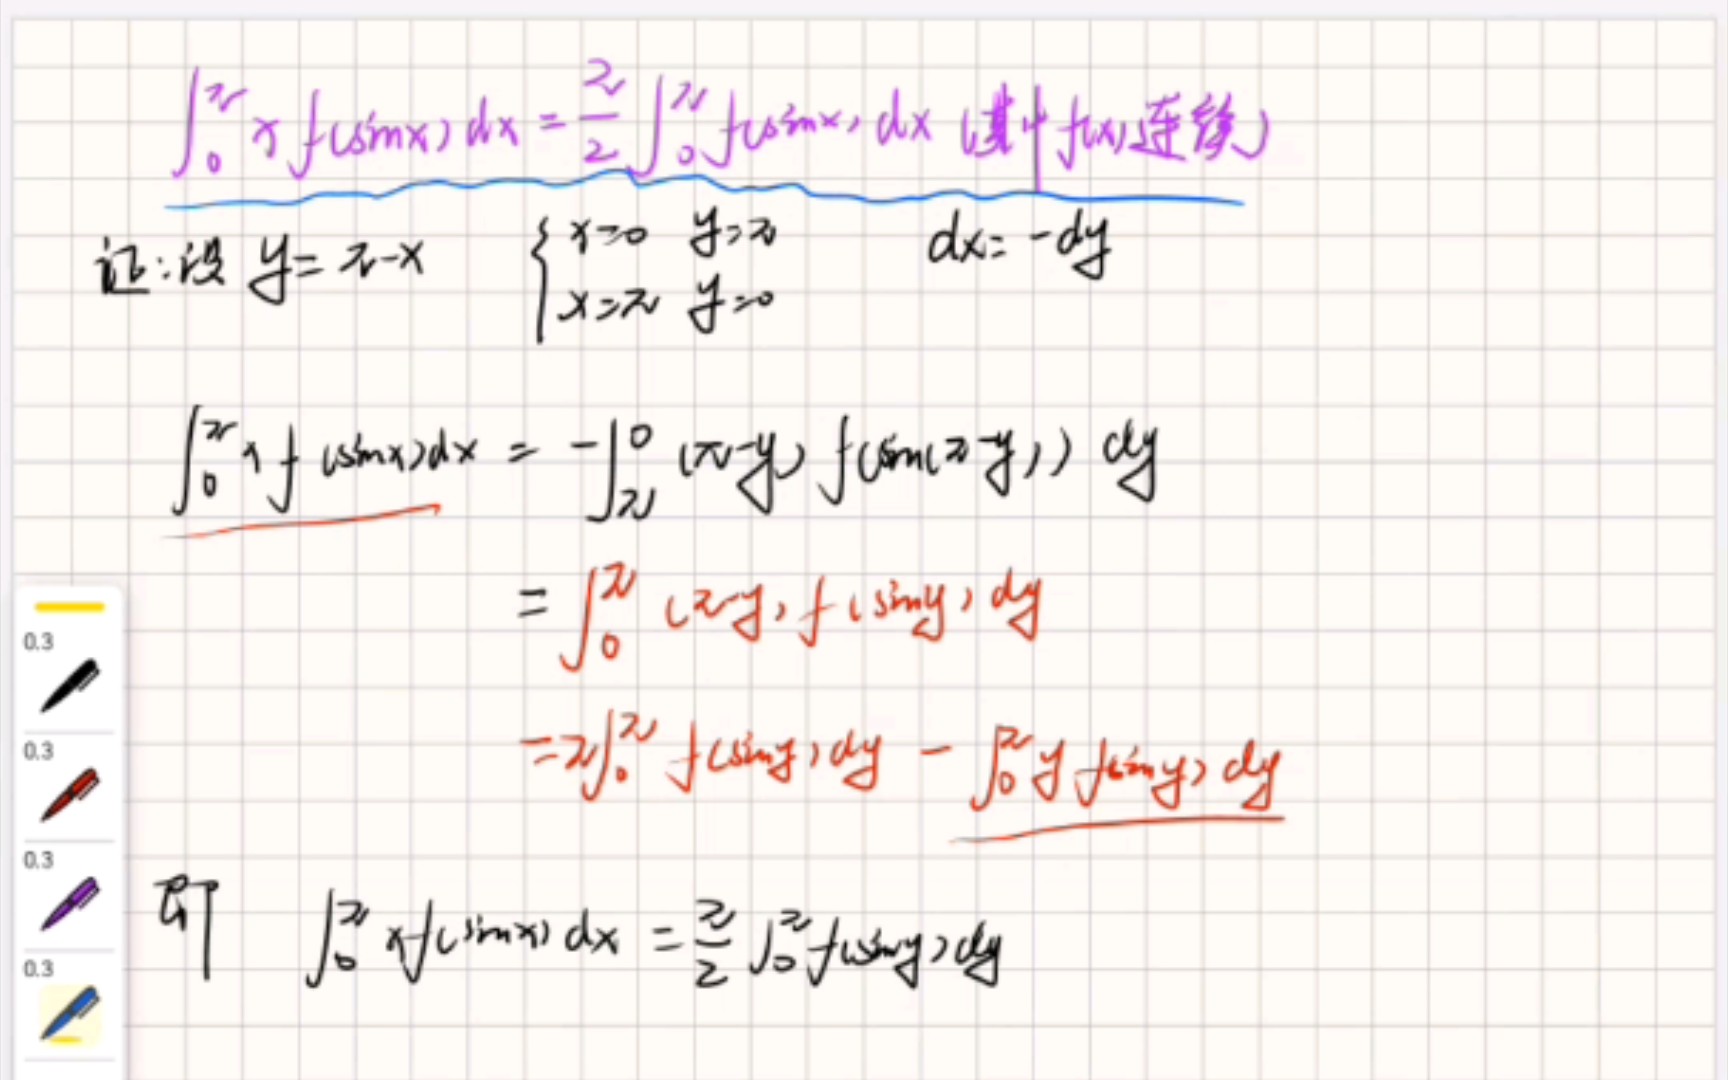 ∫₀^π x f(sinx) dx = π/2 ∫₀^π f(sinx) dx (其中f(x)连续)
证:设 y=π-x { x=0 y=π dx=-dy
x=π y=0
∫₀^π x f(sinx)dx = -∫_π^0 (π-y) f(sin(π-y)) dy
= ∫₀^π (π-y) f(siny) dy
=π∫₀^π f(siny) dy - ∫₀^π y f(siny) dy
即 ∫₀^π xf(sinx) dx = π/2 ∫₀^π f(siny) dy
0.3
0.3
0.3
0.3